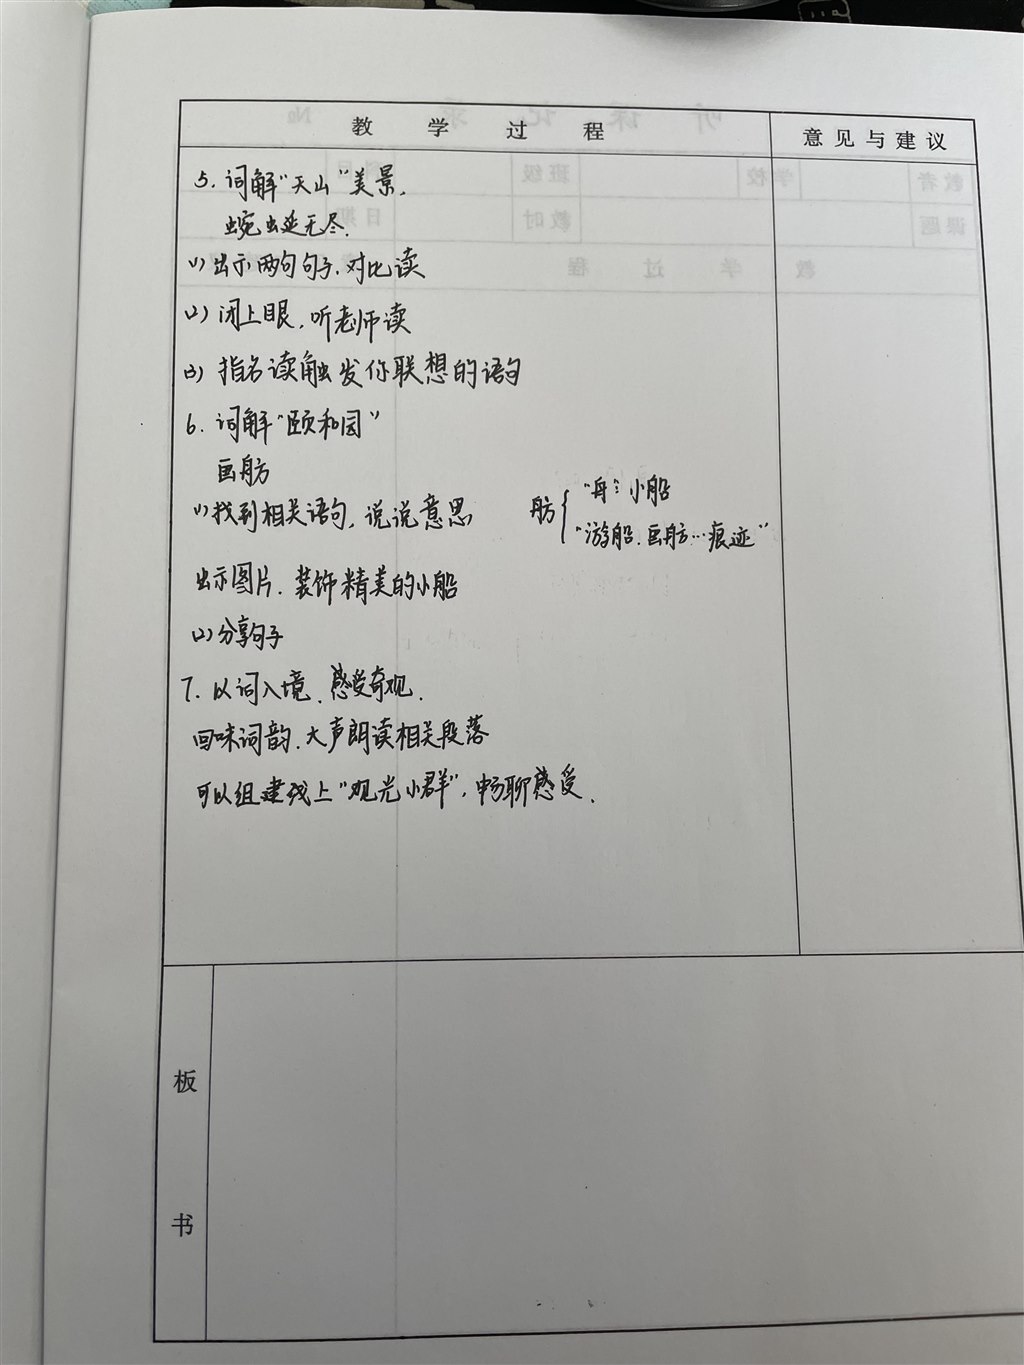 教学过程
意见与建议
5. 词解“天山”美景.
蜿蜒无尽.
(1) 出示两句句子. 对比读
(2) 闭上眼, 听老师读
(3) 指名读触发你联想的语句
6. 词解“颐和园”
画舫
(1) 找到相关语句, 说说意思
舫{“舟”: 小船
“游船. 画舫…痕迹”
出示图片. 装饰精美的小船
(2) 分享句子
7. 以词入境. 感受奇观.
回味词韵. 大声朗读相关段落
可以组建线上“观光小群”, 畅聊感受.
板书